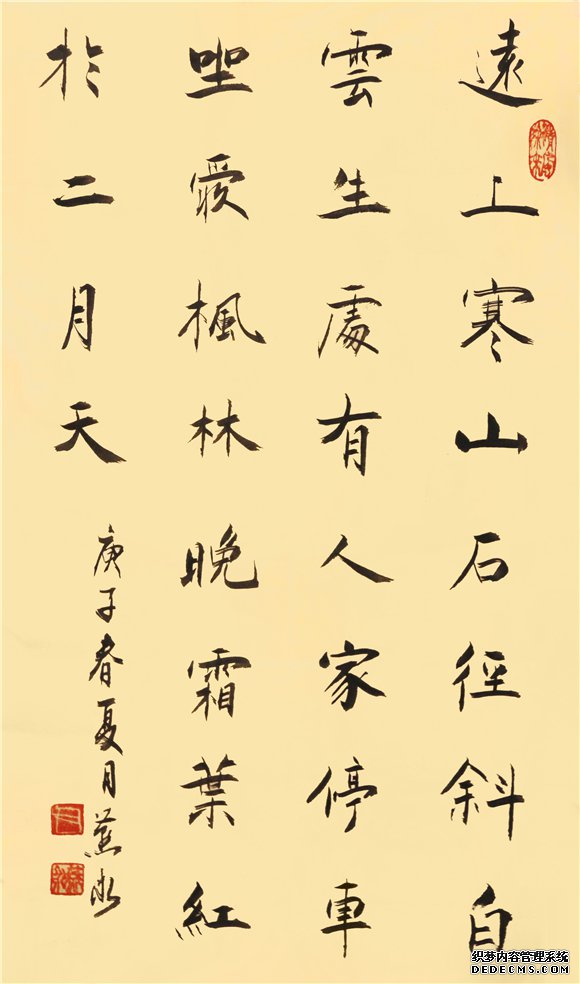 遠上寒山石徑斜白
雲生處有人家停車
坐愛楓林晚霜葉紅
於二月天
庚子春夏月
织梦内容管理系统
DEDECMS.COM